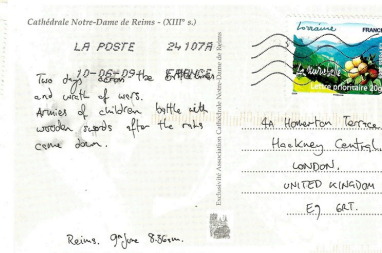 Cathédrale Notre-Dame de Reims - (XIIIe s.)
LA POSTE 24107A
10-06-09 FRANCE
Two days across the
and wrath of wars.
Armies of children battle with
wooden swords after the
come down.
Reims. 9th June 8.36am.
Exclusivité Association Cathédrale Notre-Dame de Reims
Lorraine FRANCE
La mirabelle
Lettre prioritaire 20g
4A Homerton Terrace,
Hackney Central,
LONDON.
UNITED KINGDOM
E9 6RT.